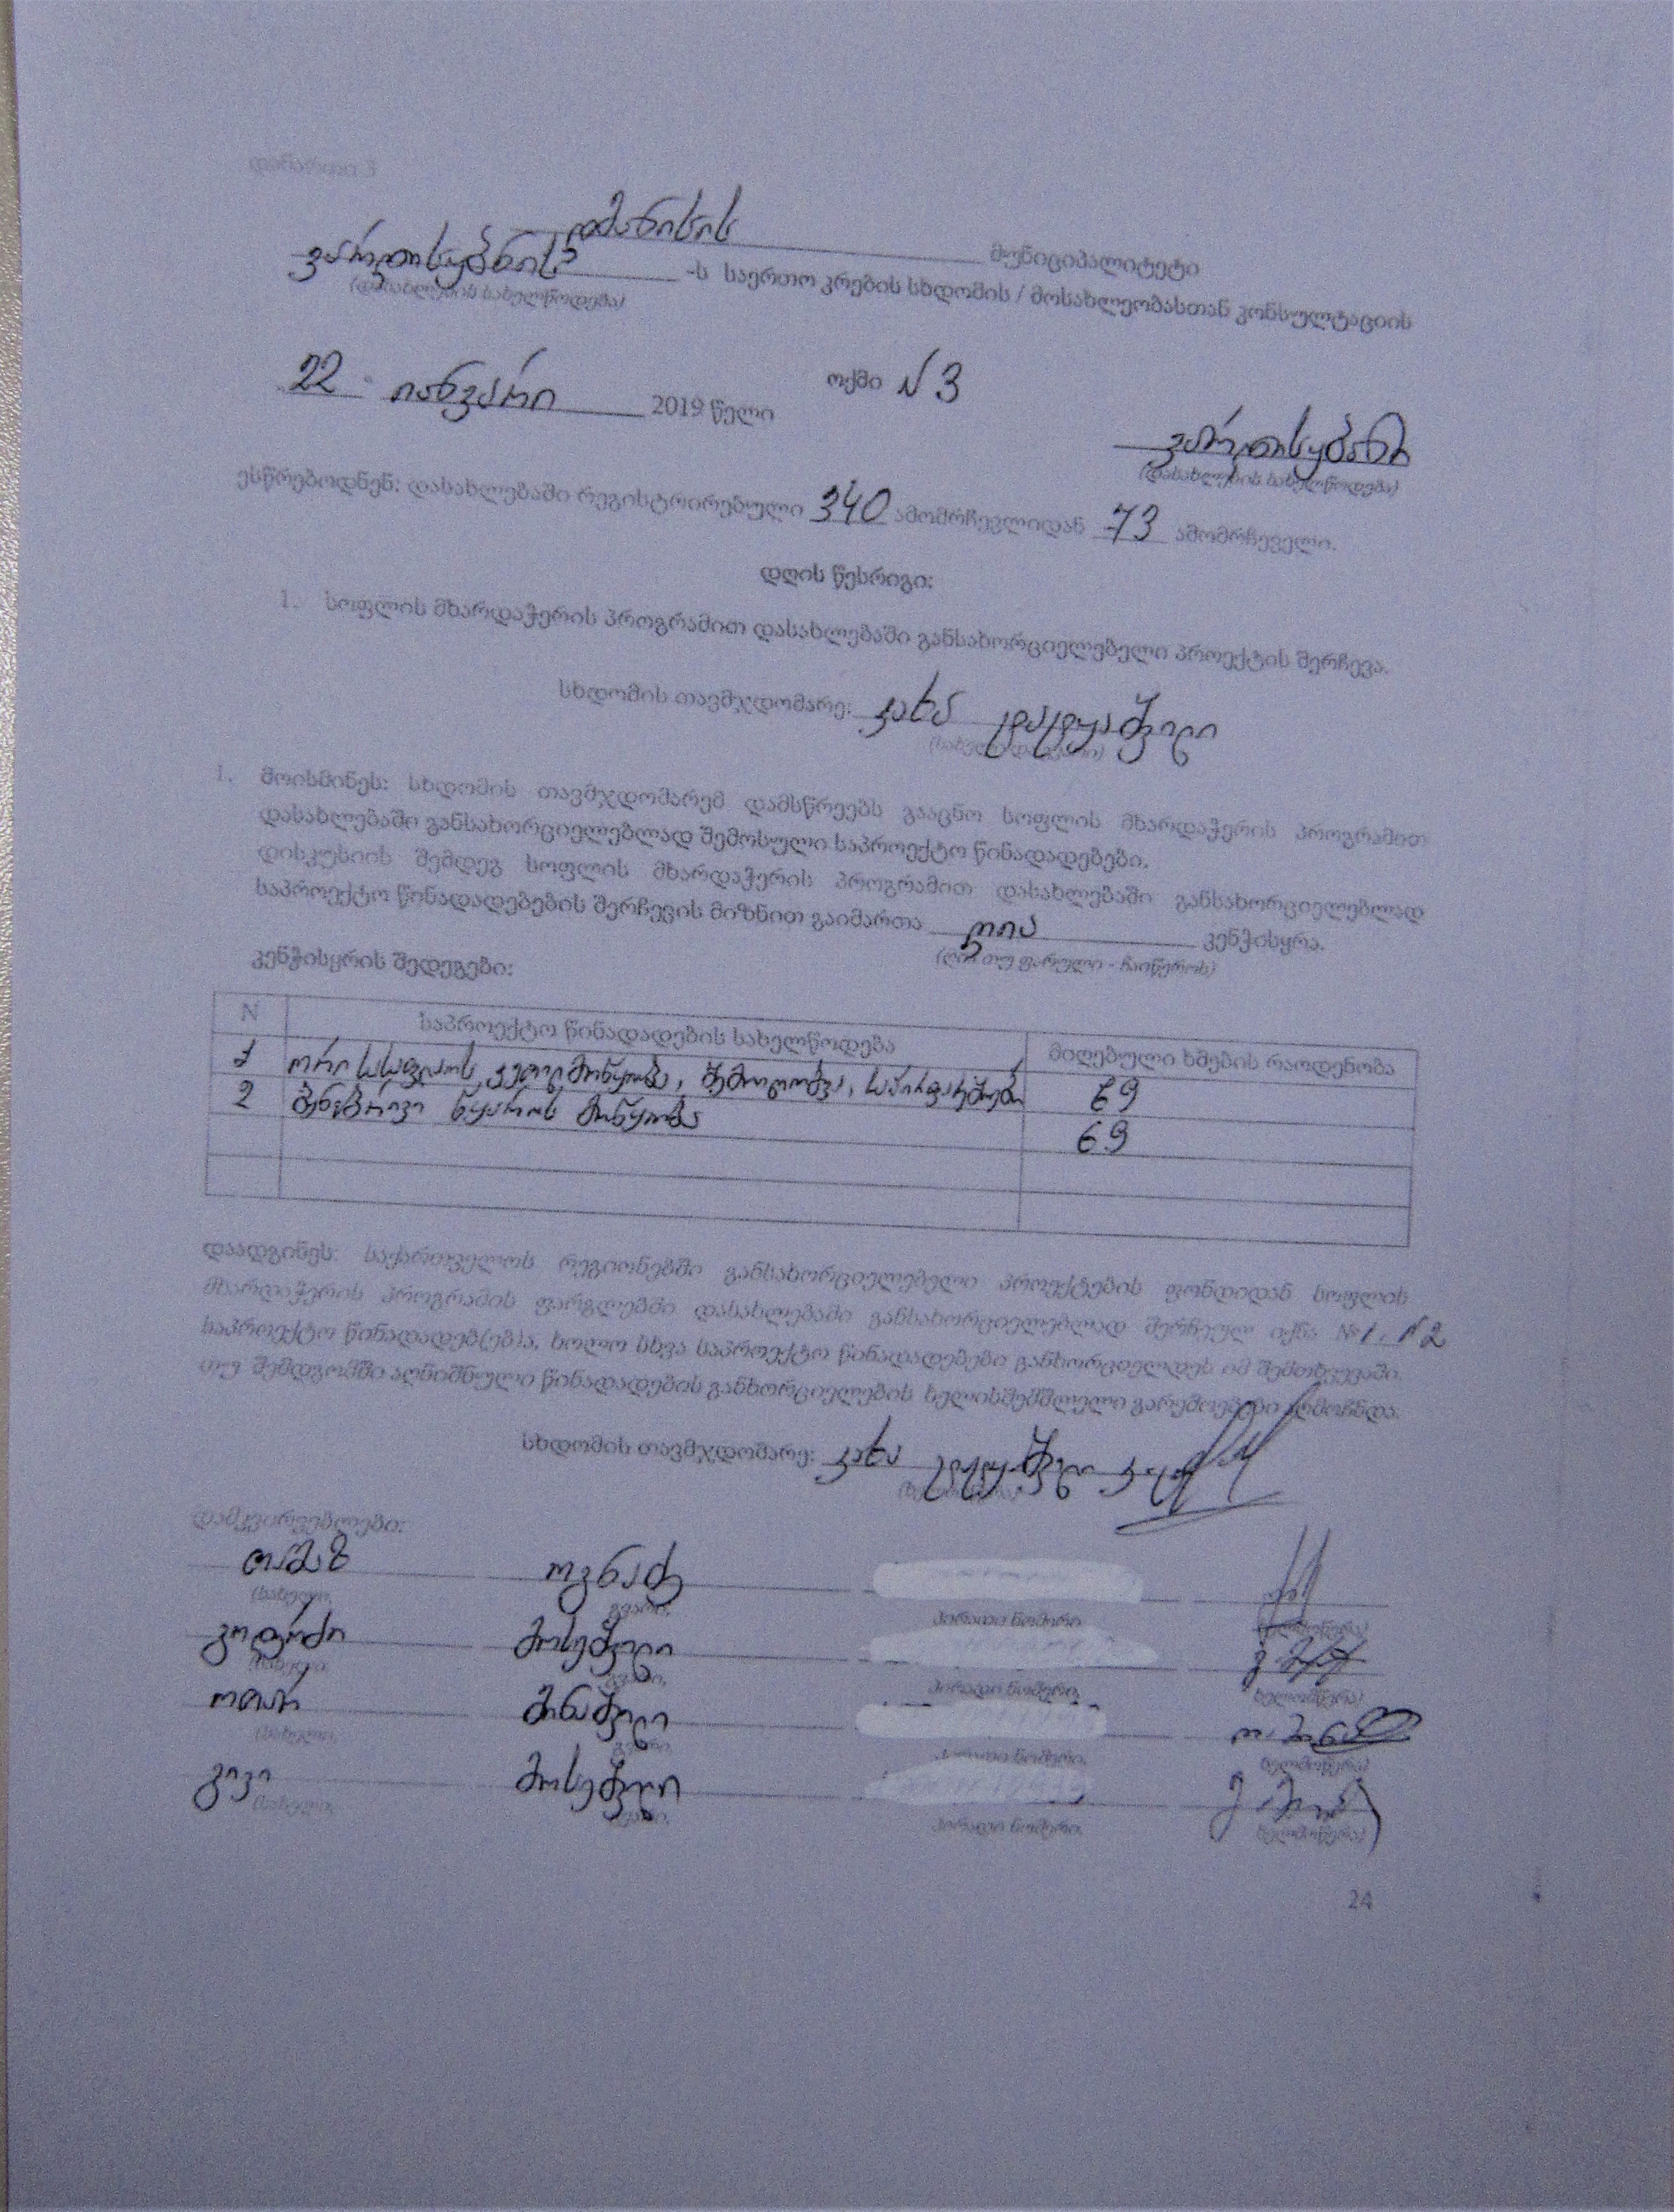 დანართი 3
დმანისის მუნიციპალიტეტი
ვარდისუბნის -ს საერთო კრების სხდომის / მოსახლეობასთან კონსულტაციის
(დასახლების სახელწოდება)
ოქმი N 3
22 იანვარი 2019 წელი
ვარდისუბანი
(დასახლების სახელწოდება)
ესწრებოდნენ: დასახლებაში რეგისტრირებული 340 ამომრჩევლიდან 73 ამომრჩეველი.
დღის წესრიგი:
1. სოფლის მხარდაჭერის პროგრამით დასახლებაში განსახორციელებელი პროექტის შერჩევა.
სხდომის თავმჯდომარე: კახა
(სახელი და გვარი)
1. მოისმინეს: სხდომის თავმჯდომარემ დამსწრეებს გააცნო სოფლის მხარდაჭერის პროგრამით
დასახლებაში განსახორციელებლად შემოსული საპროექტო წინადადებები.
დისკუსიის შემდეგ სოფლის მხარდაჭერის პროგრამით დასახლებაში განსახორციელებლად
საპროექტო წინადადებების შერჩევის მიზნით გაიმართა ღია კენჭისყრა.
(ღია თუ ფარული - ჩაიწეროს)
კენჭისყრის შედეგები:
N საპროექტო წინადადების სახელწოდება მიღებული ხმების რაოდენობა
1 ორი სასაფლაოს მოწყობა, შემოღობვა, 69
2 წყაროს მოწყობა 69
დაადგინეს: საქართველოს რეგიონებში განსახორციელებელი პროექტების ფონდიდან სოფლის
მხარდაჭერის პროგრამის ფარგლებში დასახლებაში განსახორციელებლად შერჩეულ იქნა №1, N2
საპროექტო წინადადებ(ებ)ა, ხოლო სხვა საპროექტო წინადადებები განხორციელდეს იმ შემთხვევაში,
თუ შემდგომში აღნიშნული წინადადების განხორციელების ხელისშემშლელი გარემოებები აღმოჩნდა.
სხდომის თავმჯდომარე: კახა
დამკვირვებლები:
თამაზ
(სახელი, გვარი, პირადი ნომერი, ხელმოწერა)
მოსეშვილი
(სახელი, გვარი, პირადი ნომერი, ხელმოწერა)
ოთარ მინაშვილი
(სახელი, გვარი, პირადი ნომერი, ხელმოწერა)
გივი მოსეშვილი
(სახელი, გვარი, პირადი ნომერი, ხელმოწერა)
24